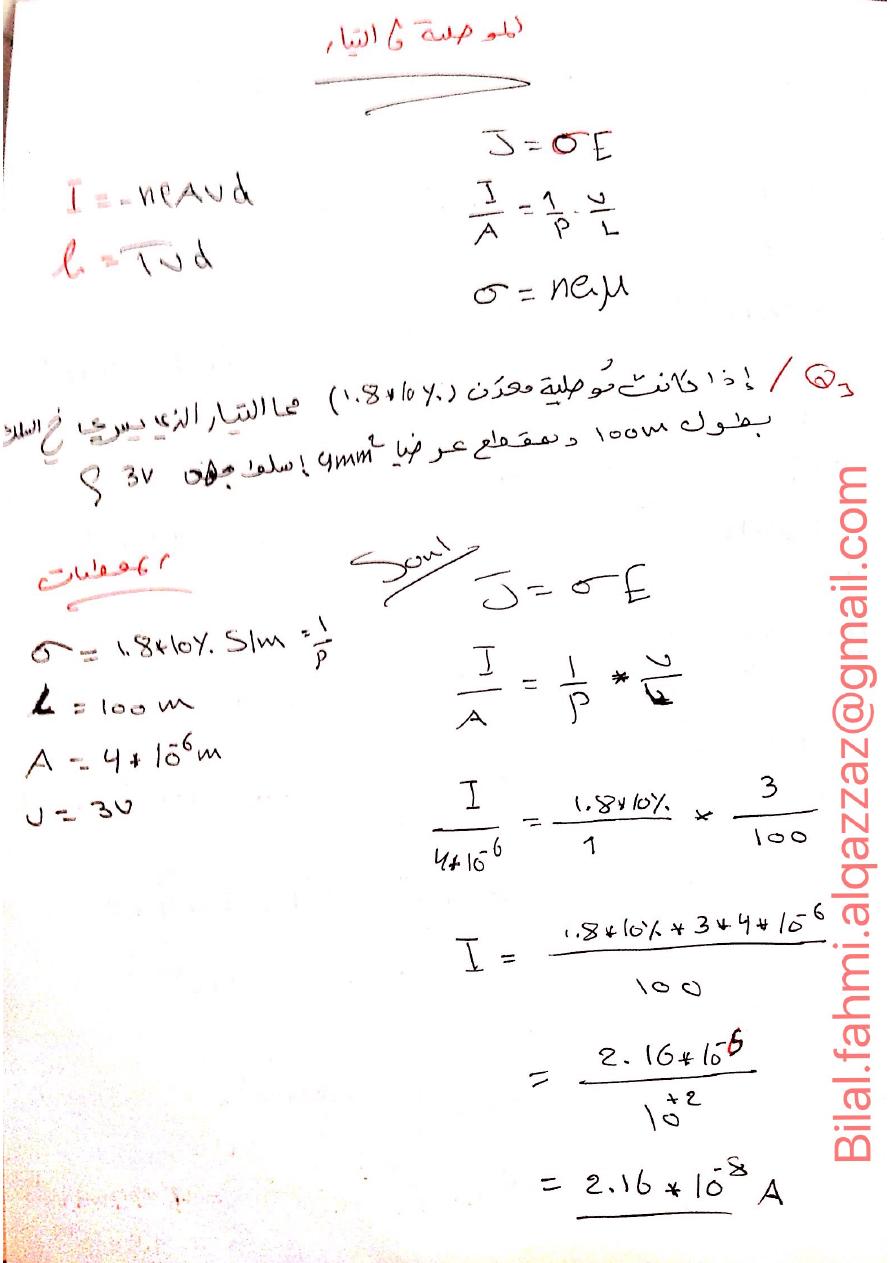 الموصلية و التيار
J = σE
I = -neAvd
I/A = 1/ρ . v/L
l = τvd
σ = neμ
Q3 / إذا كانت موصلية معدن (1.8*10%) ما التيار الذي يسري في السلك
بطول 100m و مقطع عرضيا 4mm² إسلط جهد 3v ؟
المعطيات
σ = 1.8*10% S/m = 1/ρ
L = 100 m
A = 4*10⁻⁶ m
v = 3v
J = σE
I/A = 1/ρ * v/L
I/4*10⁻⁶ = 1.8*10%/1 * 3/100
I = 1.8*10% * 3*4*10⁻⁶ / 100
= 2.16*10⁻⁶ / 10⁺²
= 2.16*10⁻⁸ A
Bilal.fahmi.alqazzaz@gmail.com